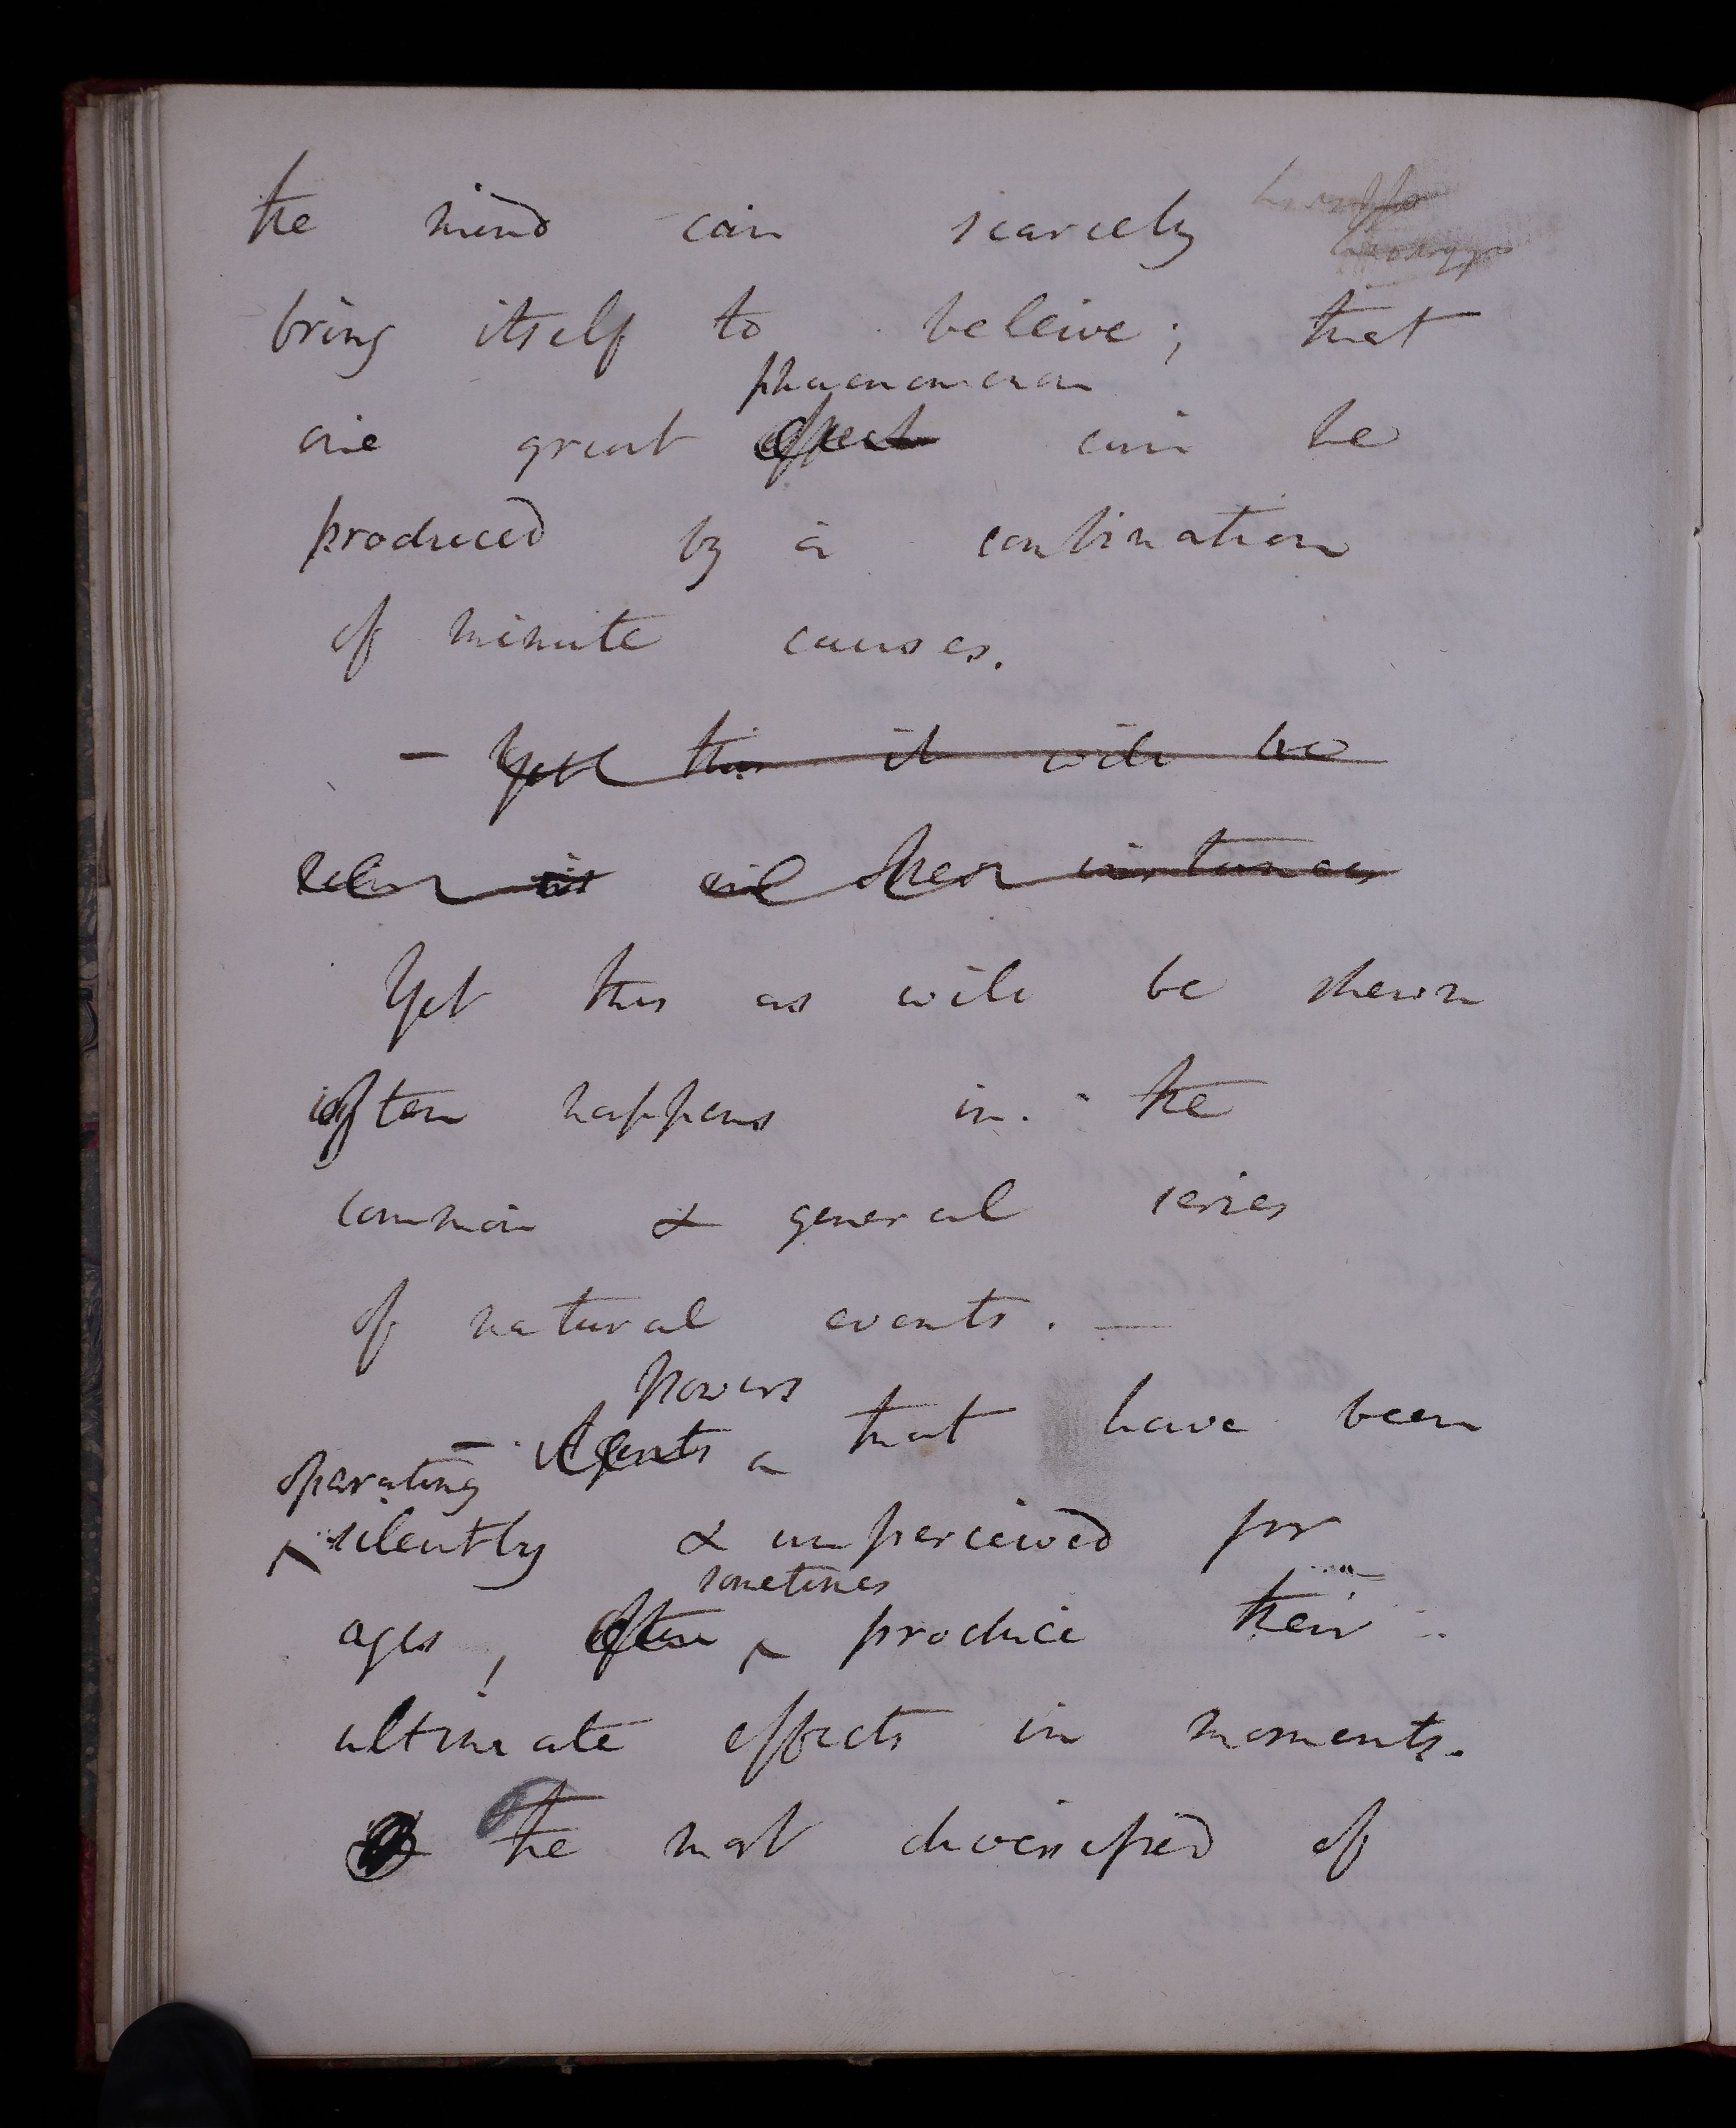 the mind can scarcely
bring itself to beleive; that
phaenomenon
one great effect can be
produced by a conbination
of minute causes.
– Yet this it will be
in other instances
Yet this as will be shewn
often happens in the
common & general series
of natural events. —
Powers
– Agents that have been
operating
silently & unperceived for
sometimes
ages, often ^ produce their
ultimate effects in moments.
the most diversified of